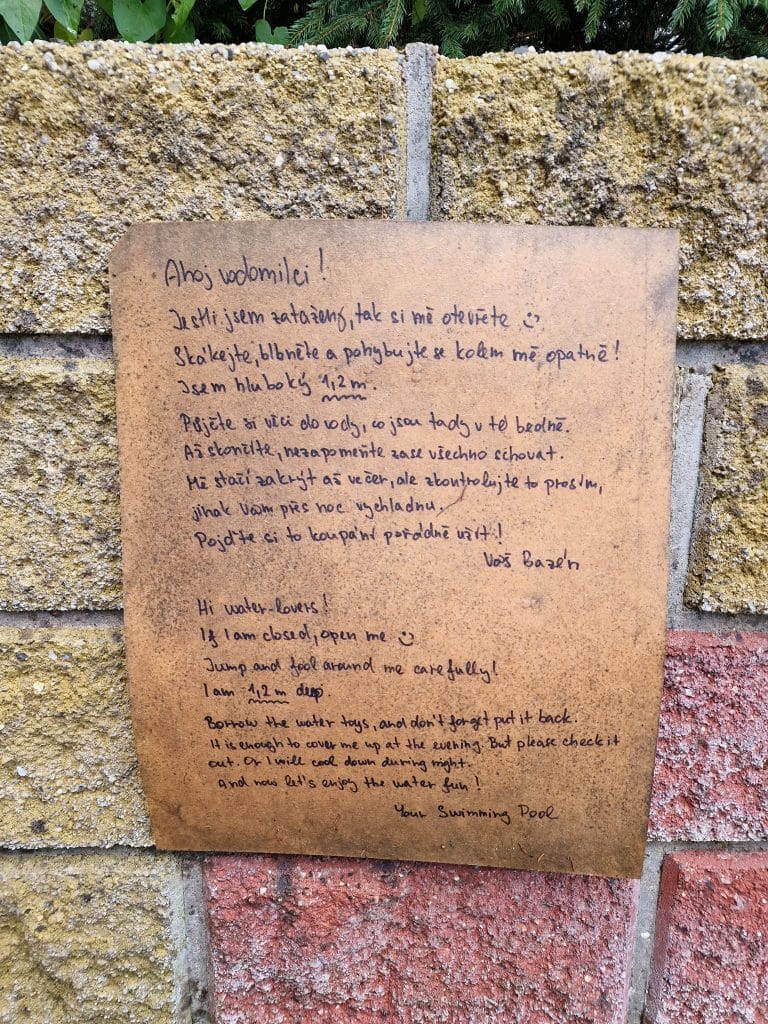 Ahoj vodomilci!
Jestli jsem zatažený, tak si mě otevřete :)
Skákejte, blbněte a pohybujte se kolem mě opatně!
Jsem hluboký 1,2 m.
Pujčte si věci do vody, co jsou tady v té bedně.
Až skončíte, nezapomeňte zase všechno schovat.
Mě stačí zakrýt až večer, ale zkontrolujte to prosím,
jinak vám přes noc vychladnu.
Pojďte si to koupání pořádně užít!
Váš Bazén
Hi water-lovers!
If I am closed, open me :)
Jump and fool around me carefully!
I am 1,2 m deep.
Borrow the water toys, and don't forget put it back.
It is enough to cover me up at the evening. But please check it
out. Or I will cool down during night.
And now let's enjoy the water fun!
Your Swimming Pool